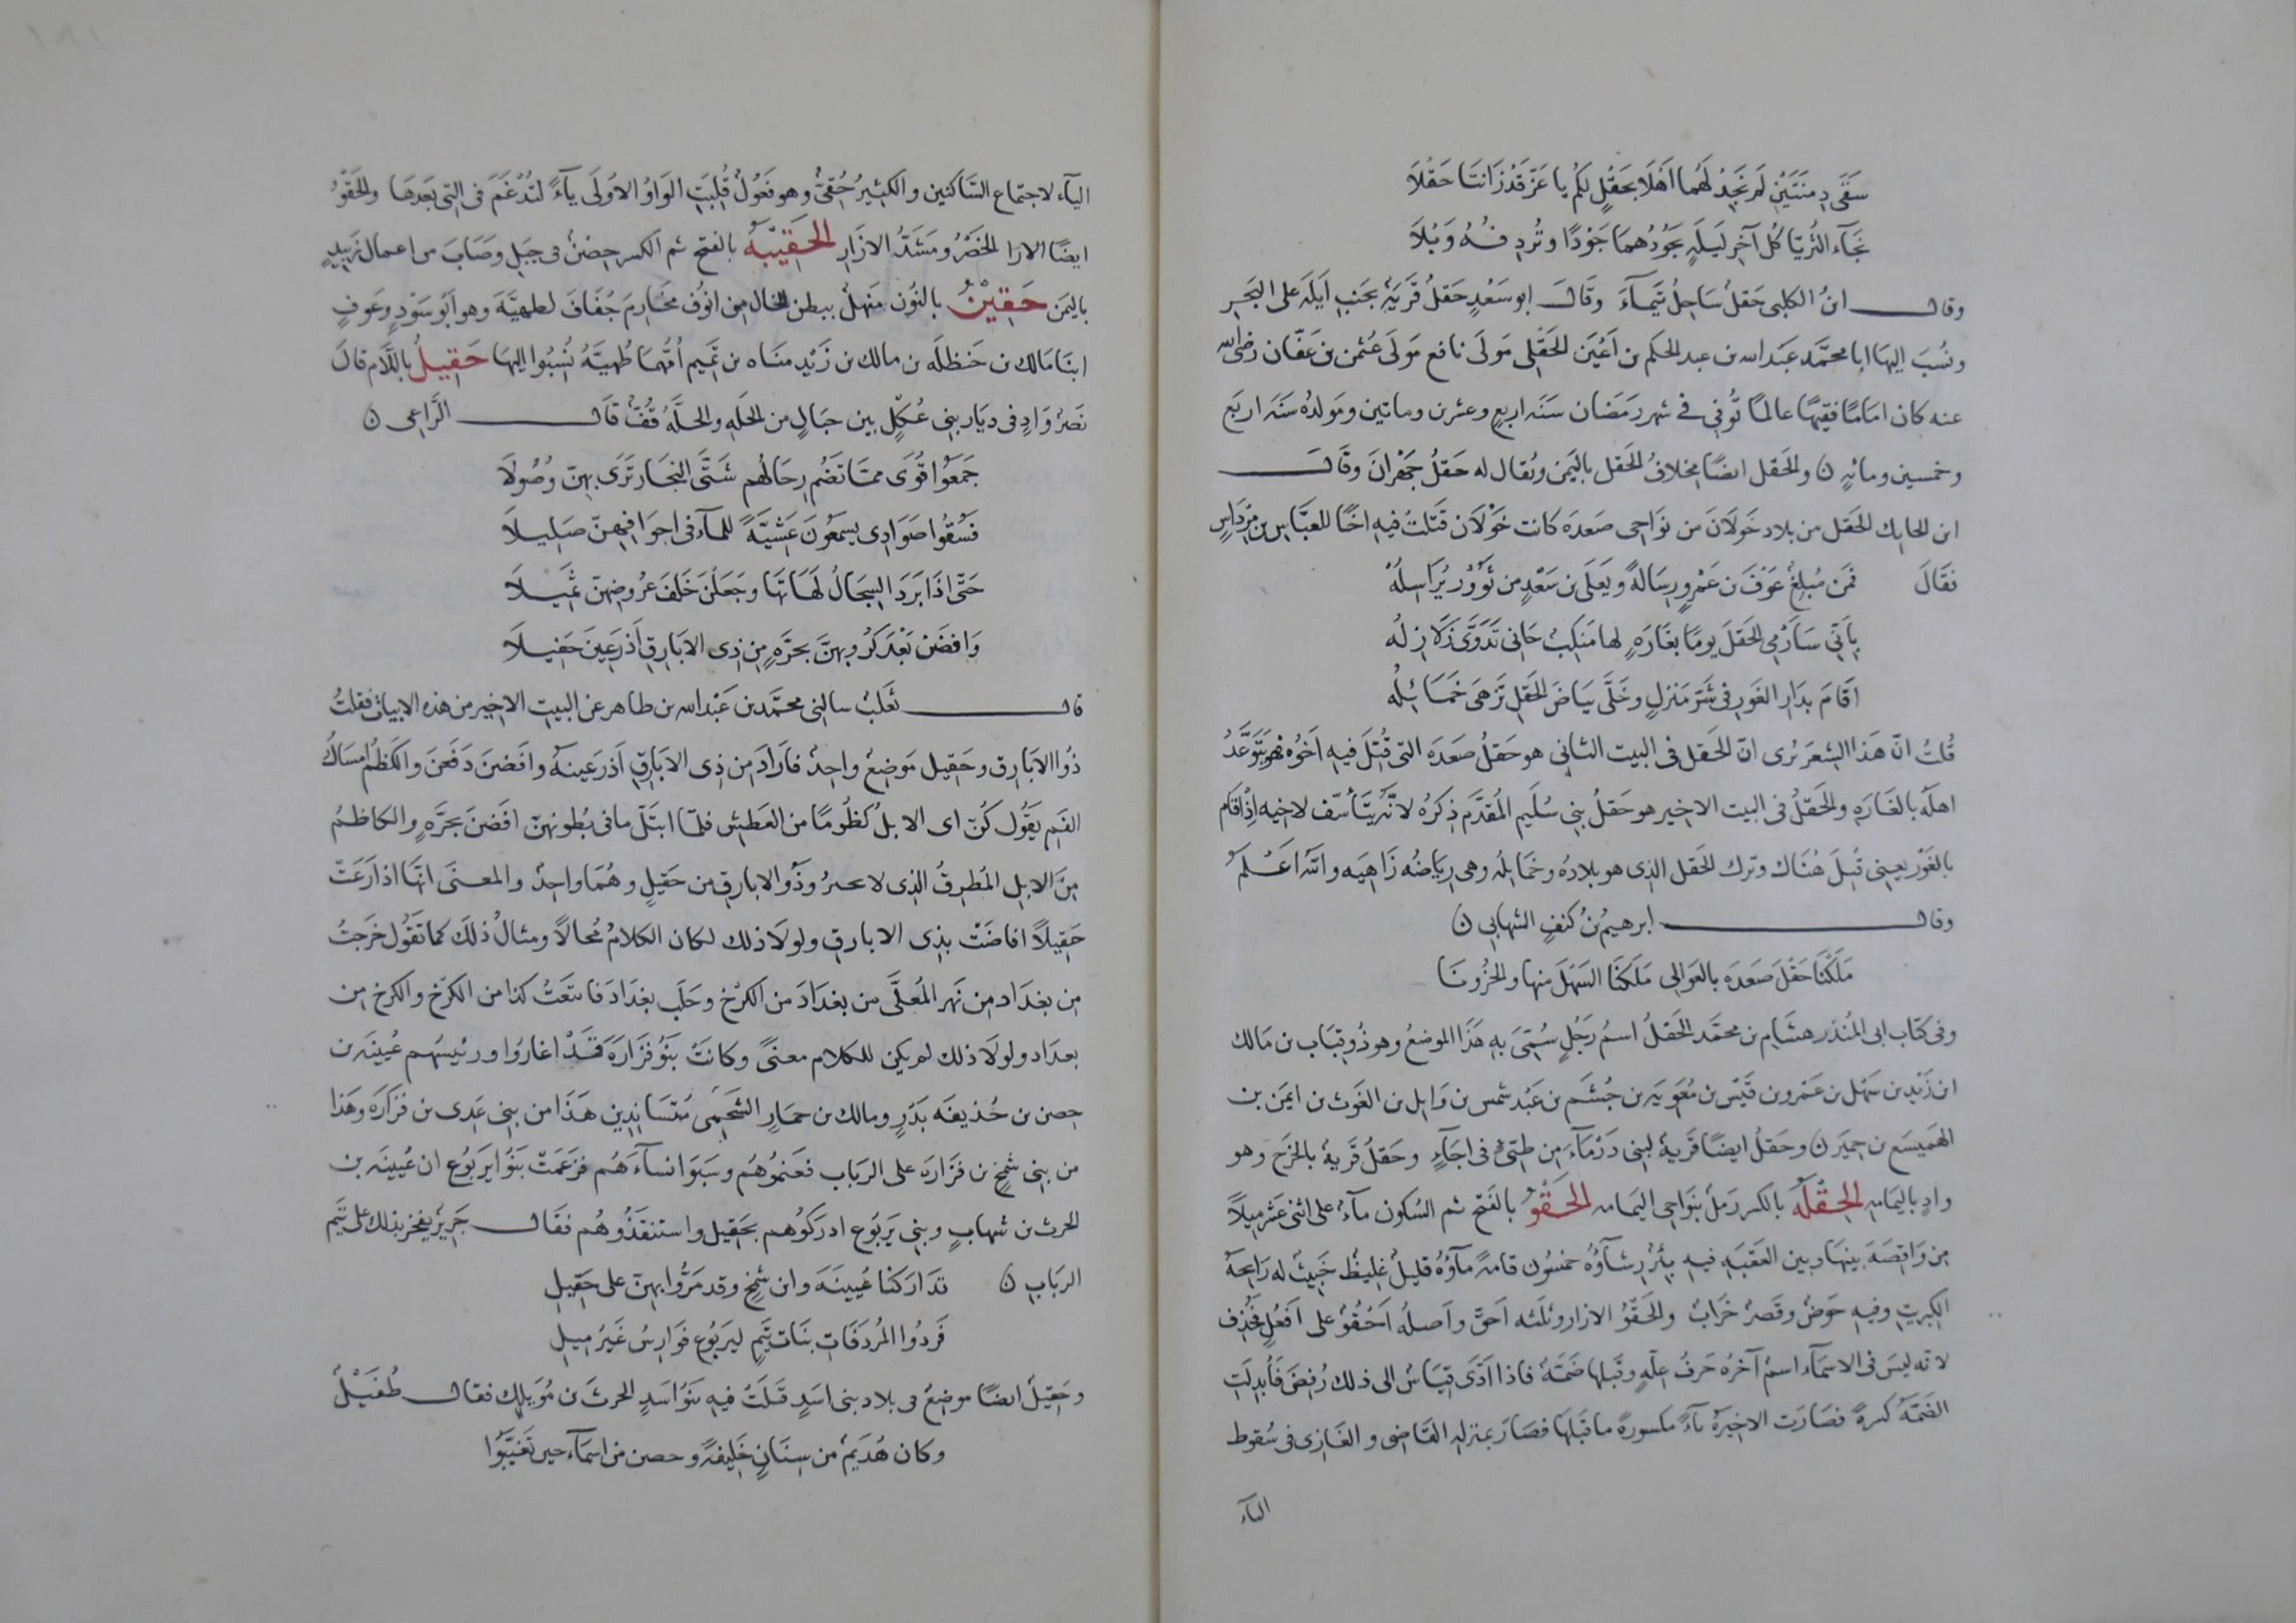 سَقَى دِمنَتَيْنِ لَم نَجِدْ لَهُما اَهْلَا بحَقْلٍ لكُم يا عَزّ قَدْ زَانتَا حَقْلَا
نجَآء الثُريّا كُل آخِرِ لَيلَةٍ بجُودُهما جَوْدًا وتُردِ فُهُ وَبْلَا
وقال ابنُ الكلبى حَقلُ سَاحِلُ تَيمآءَ وقَالَ ابو سَعْدٍ حَقلُ قَريَةٌ بجَنبِ اَيلَة على البَحرِ
ونُسِبَ اليها ابا محمَّد عَبَد الله بن عبد الحكم بن اَعْيَن الحَقْلى مَولَى نافع مَولَى عُثمن بن عَفّان رضى الله
عنه كان امامًا فقيهًا عالمًا تُوُفى فى شهر رَمَضان سَنَه اربعٍ وعشرين ومأتين ومَولدُه سَنَه اربَع
وخمسين ومائةٍ ن والحَقل ايضًا مخِلافُ الحَقل باليَمن ويُقال له حَقلُ جَهْرانَ وقَالَ
ابن الحايك الحَقل من بلاد خَولَانَ من نوَاحى صَعدَه كانت خَوْلَان قَتلتُ فيهِ اخًا للعبّاس بن مِرْدَاسٍ
فقَالَ فمَن مُبلِغٌ عَوْفَ بن عَمْرٍو رِسَالةً ويَعلَى بن سَعْدٍ من ثَوُرٍ يُرَاسِلُهْ
بِاَنّى سَاَرْمى الحَقلَ يومًا بغَارَةٍ لها مَنكِبٌ حَانى تَدَوَّى زَلَازِلُه
اَقَامَ بدَارِ الغَورِ فى شَرّ مَنزلٍ وخَلَّى بيَاضَ الحَقلِ تَزهَى خمَائلُه
قُلتُ انّ هَذا الشعرَ يُرى انّ الحَقل فى البيت الثانى هو حَقلُ صَعدَه التى قُتِلَ فيهِ اَخوُه فهو يَتَوَعَّدُ
اهله بالغَارَه والحَقلُ فى البيت الاخير هو حَقلُ بنى سُلَيم المُقدَّم ذِكرُه لانّه يتَأَسّف لاخيه اِذْ اقَام
بالغَوْر يعنى قُتِلَ هُنَاك وترك الحَقل الذى هو بلادُه وخمَايلُه وهى رِيَاضُه زَاهِيَه والله اَعْلَم
وقال ابرهيمُ بنُ كنفٍ الشهابى ن
مَلكْنَا حَقْلَ صَعدَه بالعَوالى مَلكنَا السَهْلَ منها والحُزُونَا
وفى كتاب ابى المُنذر هشَام بن محمَّد الحَقلُ اسمُ رَجُلٍ سُمّىَ بهِ هَذَا الموضِعُ وهو ذُو قِبَاب بن مَالك
ابن زَيْد بن سَهْل بن عَمْرو بن قَيْس بن مُعَويَه بن جُشَم بن عَبْد شمس بن وَايل بن الغَوث بن ايمَن بن
الهَميسَع بن حِميَر ن وحَقلُ ايضًا قَريةٌ لبنى دَرْمَآءَ من طيّئ فى اجَآءٍ وحَقلُ قَريةٌ بالخَرج وهو
وادٍ باليَمامه الحِقْلَه بالكسر رَملٌ بنَواحى اليَمامه الحَقْوُ بالفَتح ثم السُكون مآءٌ على اثنى عَشر ميلًا
من وَاقِصَةَ بينها وبين العَقبَه فيهِ بِئرٌ رِشآؤُه خمسُون قامةً مآؤهُ قليلٌ غليظٌ خَبيثٌ له رَايحَة
الكبريت وفيهِ حَوضٌ وقَصرٌ خَرابٌ والحَقوُ الازار وثَلثه اَحقٍ واَصلُه اَحْقُوٌ على اَفعُلٍ فحُذِف
لانّه ليسَ فى الاسمآء اسمٌ آخرُه حَرفُ علّةٍ وقَبلها ضَمّةٌ فاذا ادَّى قيَاسٌ الى ذلك رُفضَ فاُبدِلَتِ
الضَمّةُ كسرةً فصَارَت الاخيرةُ يآءً مكسورةً ما قبلَها فصَارَ بمنزله القَاضى والغَازى فى سُقوط
اليآء
اليآء لاجتماع السَّاكنين والكثيرُ حُقىٌّ وهو فَعُولٌ قُلبَتِ الوَاوُ الاوُلَى يآءً لتُدْغَمَ فى التى بَعدَها والحَقْوُ
ايضًا الازا الخَصْرُ ومَشَدُّ الازَارِ الحَقيبَّة بالفتح ثم الكسر حِصْنٌ فى جبَلِ وصَابَ من اعمال زَبيدٍ
باليَمن حَقيْنٌ بالنُون مَنهلٌ ببطن الخال من انوُف مخَارِمَ جُفَافَ لطهيَّة وهو ابَو سَوْدٍ وعَوفٍ
ابنَا مَالك بن حَنظلَه بن مالك بن زَيْد منَاه بن تميم اُمّهمَا طُهيَّه نُسِبُوا اليهَا حَقيلُ باللَّام قالَ
نَصْرُ وَادٍ فى ديَار بنى عُكْلٍ بين جبَالٍ من الحَله والحلَّهُ قُفّ قال الرَّاعى ن
جَمَعُوا قُوَى ممّا تَضُم رِحَالُهم شَتَّى النِجَار تَرَى بهِنّ وُصُولَا
فسُقُوا صَوَادِى يسمَعُونَ عَشيَّةً للمآء فى اجوَافهِنّ صَليلَا
حَتّى اذَا بَرَدَ السجَالُ لهَاتَها وجَعلنَ خَلفَ عرُوضِهنّ ثميلَا
وَافضَن بَعْدَ كُرُوبهنّ بحرَّةٍ مِن ذِى الابَارِق اَذ رَعينَ حَقيلَا
قال ثَعلَبُ سالنى محمَّد بن عَبْد الله بن طاهر عن البيت الاخير من هذه الابيات فقلتُ
ذُوا الابَارِق وحَقيل مَوضِعٌ واحِدٌ فاَرَادَ من ذِى الاَبَارِق اَذ رَعينَهُ وافَضنَ دَفَعنَ والكَظْمُ امسَاكُ
الفَم يقُول كُنّ اى الابلُ كُظُومًا من العَطش فلمّا ابتَلّ ما فى بُطونهنّ افَضنَ بجَرَّةٍ والكاظمُ
منَ الابل المُطرِقُ الذى لا يجترُ وذُو الابارق من حَقيلٍ وهُمَا واحِدٌ والمعنَى انّها اذا رَعَتْ
حَقيلًا افاضَتْ بذِى الابارق ولولَا ذلك لكان الكلامُ مُحالًا ومثالُ ذلكَ كما تَقُول خَرجتُ
من بغدَاد من نَهرِ المُعلَّى من بغدَادَ من الكرْخ وحَلَب بغدَادَ فابتَعتُ كذا من الكرْخ والكرخ من
بعداد ولولَا ذلك لم يكن للكلام معنًى وكانَتْ بَنُو فَزَارَةَ قَدْ اغارُوا ورئيسُهم عُيَينَه بن
حِصن بن حُذيفه بَدْرٍ ومالك بن حمَارٍ الشَمْخِىُّ مُتسَانِدِين هَذَا من بنى عَدِى بن فَزَارَه وهَذا
من بنى شمْخ بن فَزَارَه على الربَاب فغنمُوهُم وسَبَوَا نسآءَهُم فزَعَمتْ بَنُوا يَربُوع ان عُيينَه بن
الحرث بن شهابٍ وبنى يَربُوع ادرَكُوهم بحَقيل واستنقذُوهُم فقال جَريرٌ يفخر بذلك على تَيم
الربَاب ن تدَارَكنَا عُيينَةَ وابن شمْخٍ وقد مَرّوا بهنّ على حَقيلِ
فَردُوا المُردَفَاتِ بنَات تَيم ليَربُوع فوَارِسُ غَيرُ ميلِ
وحَقيلُ ايضًا موضِعٌ فى بلاد بنى اسَدٍ قَتلَتْ فيهِ بَنُو اسَدٍ الحرثَ بن مُوَيلِك فقال طُفَيْلٌ
وكان هُدَيمٌ من سِنَانٍ خَليفةً وحصن من اسمآء حين تغيَّبُوا